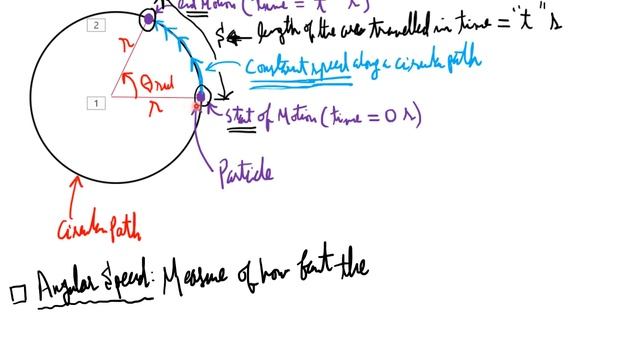 End of Motion (time = "t" s)
2
S ← length of the arc travelled in time = "t" s
r
θ rad
Constant speed along a circular path
1
r
Start of Motion (time = 0 s)
Particle
Circular Path
Angular Speed: Measure of how fast the